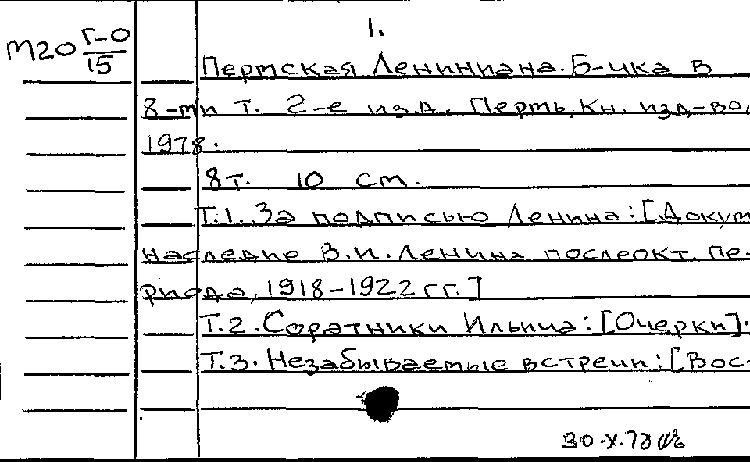 1.
М20 Г-0/15
Пермская Лениниана. Б-чка в
8-ми т. 2-е изд. Пермь, Кн. изд-во,
1978.
8 т. 10 см.
Т.1. За подписью Ленина: [Докум
наследие В.И. Ленина послеокт. пе-
риода, 1918-1922 гг.]
Т.2. Соратники Ильича: [Очерки].
Т.3. Незабываемые встречи: [Вос-
30.X.78